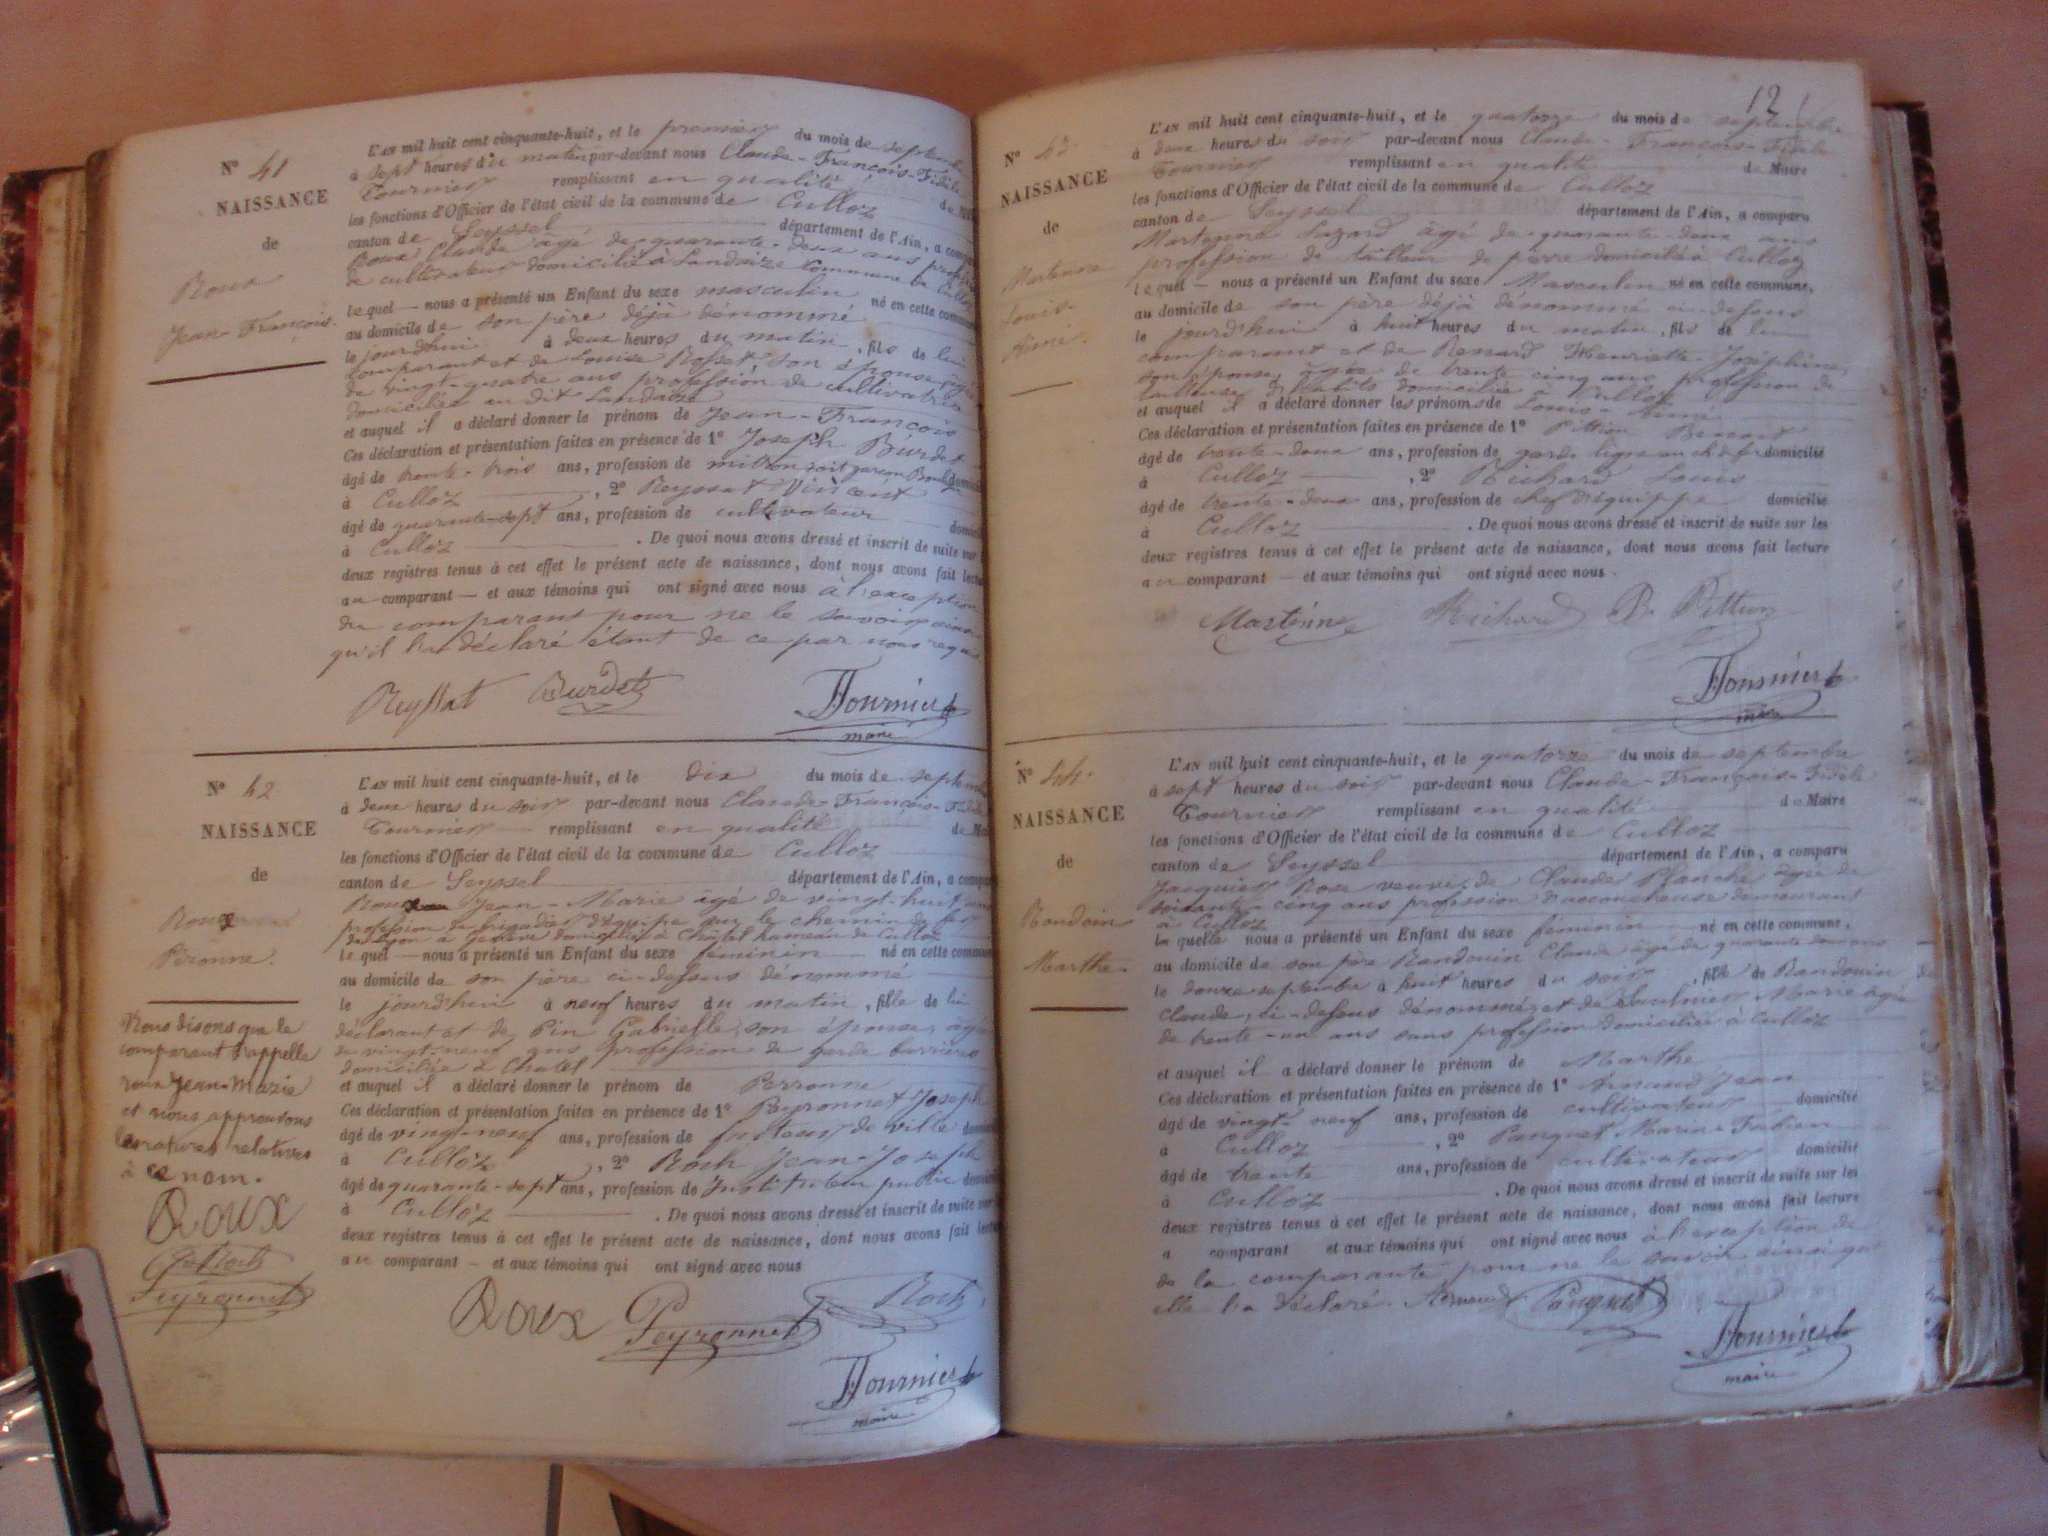 N° 41
NAISSANCE
de
Roux
Jean-François.
L'AN mil huit cent cinquante-huit, et le premier du mois de septembre
à sept heures du matin par-devant nous Claude-François-Fidèle
Tournier remplissant en qualité de
les fonctions d'Officier de l'état civil de la commune de Culloz
canton de Seyssel département de l'Ain, a comparu
Roux Claude âgé de quarante-deux ans profession
de cultivateur domicilié à Landaize commune de Culloz
lequel — nous a présenté un Enfant du sexe masculin né en cette commune
au domicile de son père déjà dénommé
le jourd'hui à deux heures du matin, fils de lui
comparant et de Louise Rosset, son épouse, âgée
de vingt-quatre ans profession de cultivatrice
domiciliée au dit Landaize
et auquel il a déclaré donner le prénom de Jean-François
Ces déclaration et présentation faites en présence de 1° Joseph Burdet
âgé de trente-trois ans, profession de mitron soit garçon
à Culloz, 2° Reyssat Vincent
âgé de quarante-sept ans, profession de cultivateur
à Culloz. De quoi nous avons dressé et inscrit de suite sur
deux registres tenus à cet effet le présent acte de naissance, dont nous avons fait lecture
au comparant — et aux témoins qui ont signé avec nous à l'exception
du comparant pour ne le savoir ainsi
qu'il l'a déclaré étant de ce par nous requis
Reyssat Burdet F Tournier
maire
N° 42
NAISSANCE
de
Roux
Péronne.
Nous disons que le
comparant s'appelle
roux Jean-Marie
et nous approuvons
les ratures relatives
à ce nom.
Roux
Roch
Peyronnet
L'AN mil huit cent cinquante-huit, et le dix du mois de septembre
à deux heures du soir par-devant nous Claude-François-Fidèle
Tournier remplissant en qualité de Maire
les fonctions d'Officier de l'état civil de la commune de Culloz
canton de Seyssel département de l'Ain, a comparu
Roux Jean-Marie âgé de vingt-huit ans
profession de brigadier d'équipe sur le chemin de fer
de Lyon à Genève domicilié à Châtel hameau de Culloz
lequel — nous a présenté un Enfant du sexe féminin né en cette commune
au domicile de son père ci-dessus dénommé
le jourd'hui à neuf heures du matin, fille de lui
déclarant et de Pin Gabrielle, son épouse, âgée
de vingt-neuf ans profession de garde barrière
domiciliée à Chatel
et auquel il a déclaré donner le prénom de Perronne
Ces déclaration et présentation faites en présence de 1° Peyronnet Joseph
âgé de vingt-neuf ans, profession de facteur de ville
à Culloz, 2° Roch Jean-Joseph
âgé de quarante-sept ans, profession de Instituteur public
à Culloz. De quoi nous avons dressé et inscrit de suite sur
deux registres tenus à cet effet le présent acte de naissance, dont nous avons fait lecture
au comparant — et aux témoins qui ont signé avec nous
Roux Peyronnet Roch
F Tournier
maire
12
N° 43
NAISSANCE
de
Louis-
Aimé.
L'AN mil huit cent cinquante-huit, et le quatorze du mois de septembre
à deux heures du soir par-devant nous Claude-François-Fidèle
Tournier remplissant en qualité de Maire
les fonctions d'Officier de l'état civil de la commune de Culloz
canton de Seyssel département de l'Ain, a comparu
Lazard âgé de quarante-deux ans
profession de tailleur de pierre domicilié à Culloz
lequel — nous a présenté un Enfant du sexe Masculin né en cette commune,
au domicile de son père déjà dénommé ci-dessus
le jourd'hui à huit heures du matin, fils de lui
comparant et de Renard Henriette-Joséphine,
son épouse, âgée de trente cinq ans profession de
tailleuse d'habits domiciliée à Culloz
et auquel il a déclaré donner les prénoms de Louis-Aimé
Ces déclaration et présentation faites en présence de 1° Pittion Benoit
âgé de trente-deux ans, profession de garde ligne au ch. de fer domicilié
à Culloz, 2° Richard Louis
âgé de trente-deux ans, profession de chef d'équippe domicilié
à Culloz. De quoi nous avons dressé et inscrit de suite sur les
deux registres tenus à cet effet le présent acte de naissance, dont nous avons fait lecture
au comparant — et aux témoins qui ont signé avec nous.
Richard B. Pittion
F Tournier
maire
N° 44.
NAISSANCE
de
Baudoin
Marthe.
L'AN mil huit cent cinquante-huit, et le quatorze du mois de septembre
à sept heures du soir par-devant nous Claude-François-Fidèle
Tournier remplissant en qualité de Maire
les fonctions d'Officier de l'état civil de la commune de Culloz
canton de Seyssel département de l'Ain, a comparu
Jacquier Rose veuve de Claude Planche âgée de
soixante-cinq ans profession d'accoucheuse demeurant
à Culloz
laquelle nous a présenté un Enfant du sexe féminin né en cette commune,
au domicile de son père Baudouin Claude âgé de quarante deux ans
le douze septembre à huit heures du soir, fille de Baudouin
Claude, ci-dessus dénommé, et de Saulnier Marie âgée
de trente-un ans sans profession domiciliée à Culloz
et auquel il a déclaré donner le prénom de Marthe
Ces déclaration et présentation faites en présence de 1° Arnaud Jean
âgé de vingt-neuf ans, profession de cultivateur domicilié
à Culloz, 2° Panquet Marin-Fabien
âgé de trente ans, profession de cultivateur domicilié
à Culloz. De quoi nous avons dressé et inscrit de suite sur les
deux registres tenus à cet effet le présent acte de naissance, dont nous avons fait lecture
a comparant et aux témoins qui ont signé avec nous à l'exception de
de la comparante pour ne le savoir ainsi qu'
elle l'a déclaré. Arnaud Panquet
F Tournier
maire